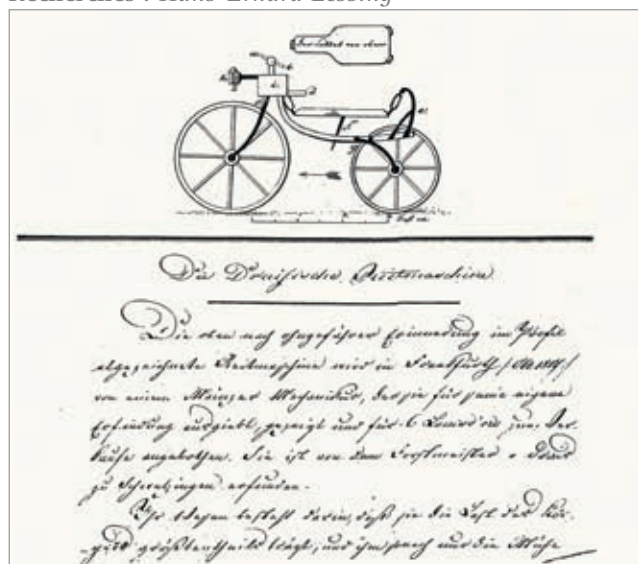 Der Sattel von oben
Die Draisische Reitmaschine.
Die oben nach ohngefährer Erinnerung im Profil
abgezeichnete Reitmaschine wird in Frankfurth
von einem Mainzer Mechanikus, der sie für seine eigene
Erfindung ausgiebt, gezeigt und für 6 Louisd'or zum Ver-
kaufe angebothen. Sie ist von dem Forstmeister v Drais
zu Schwetzingen erfunden.
Ihr Wesen besteht darin, daß sie die Last des Kör-
pers größtentheils trägt, und ihm nur die Mühe